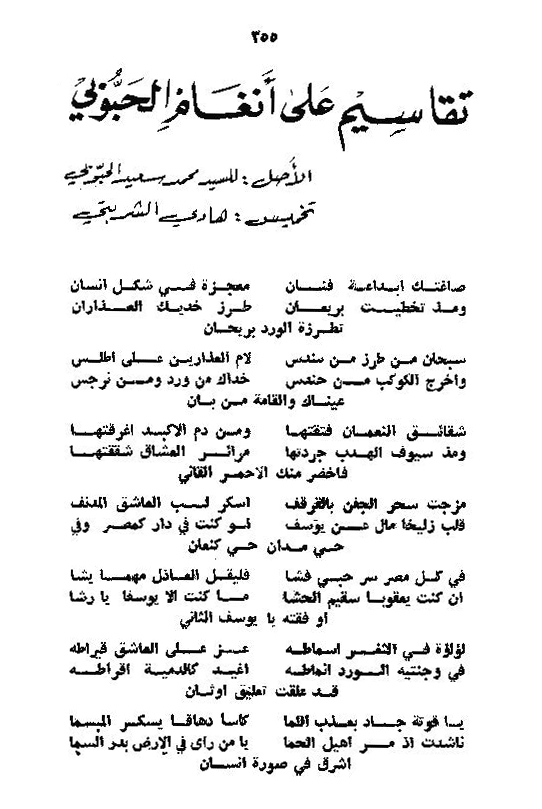 ٣٥٥
تقاسيم على أنغام الحبّوبي
الأصل : للسيد محمد سعيد الحبّوبي
تخميس : هادي الشربتي
صاغتك ابداعة فنان معجزة في شكل انسان
ومذ تخطيت بريعان طرز خديك العذاران
تطرزة الورد بريحان
سبحان من طرز من سندس لام العذارين على اطلس
واخرج الكوكب من حندس خداك من ورد ومن نرجس
عيناك والقامة من بان
شقائق النعمان فتقتها ومن دم الاكبد اغرقتها
ومذ سيوف الهدب جردتها مرائر العشاق شققتها
فاخضر منك الاحمر القاني
مزجت سحر الجفن بالقرقف اسكر لب العاشق المدنف
قلب زليخا مال عن يوسف لو كنت في دار كمصر وفي
حي مدان حي كنعان
في كل مصر سر حبي فشا فليقل العاذل مهما يشا
ان كنت يعقوبا سقيم الحشا ما كنت الا يوسفا يا رشا
او فقته يا يوسف الثاني
لؤلؤة في الثغر اسماطه عز على العاشق قيراطه
في وجنتيه الورد انماطه اغيد كالدمية اقراطه
قد علقت تعليق اوثان
يا قوتة جاد بعذب اللما كاسا دهاقا يسكر المبسما
ناشدت اذ مر اهيل الحما يا من راى في الارض بدر السما
اشرق في صورة انسان